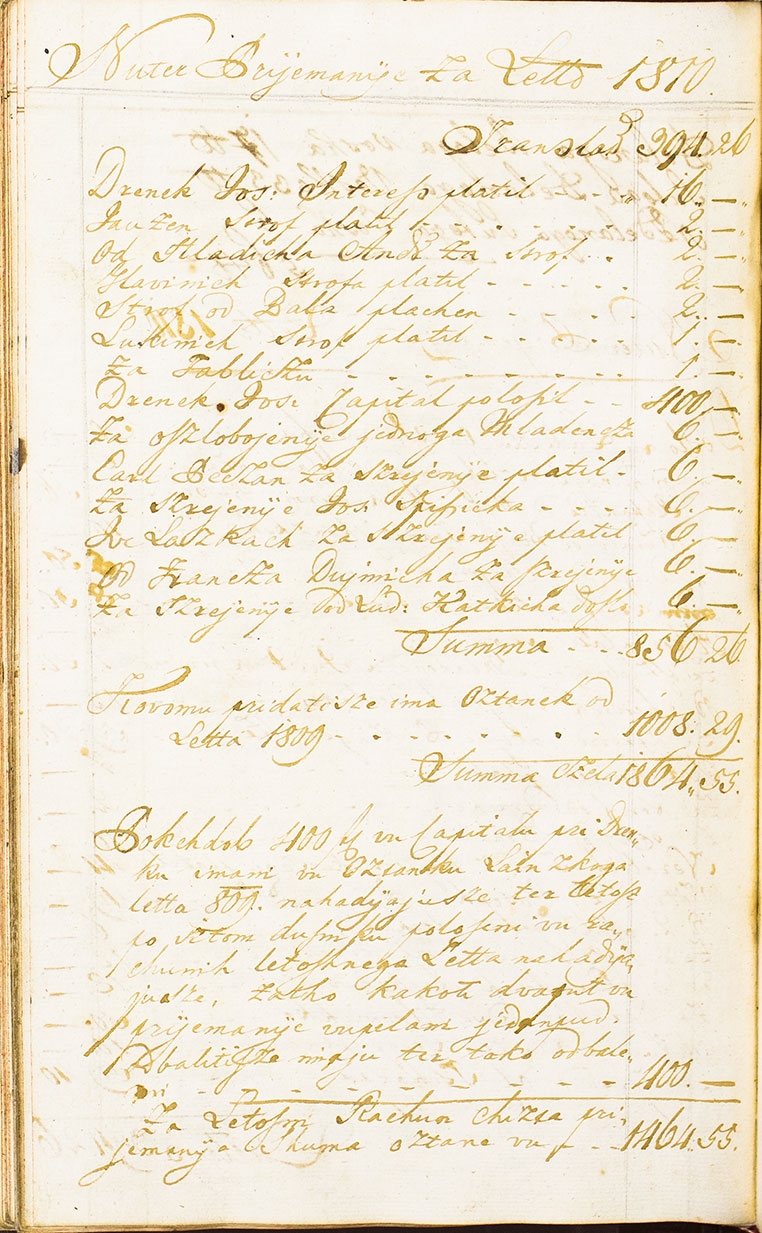 Nuter Prijemanije za Letto 1810.
Translad 394. 26
Drenek Jos: Interess platil - - „ 16. —
Jauzen Strof platil - - - - - 2. —
Od Hladicha Andr za Strof . . 2. —
Hlavinich Strofa platil - - - - - 2. —
Strof od Bala plachen - - - - 2. —
Lustinich Strof platil - - - - - 1. —
Za Tablichu - - - - - - - - 1. —
Drenek Jos: Capital polosil - - 400. —
Za oszlobojenije jednoga Mladencza 6. —
Carl Peczan za skrejenije platil - 6. —
Za Skrejenije Jos. - - - 6. —
Ive Lazkach za Skrejenije platil 6. —
Od Francza Dujmicha za skrejenije 6. —
Za Skrejenije od Lud: Katkicha doslo 6. —
Summa - - - 856 26
Kovomu pridati sze ima Oztanek od
Letta 1809 - - - - - - - 1008. 29.
Summa Czela 1864.. 55.
Pokehdob 400 f vu Capitalu pri Dren„
ku imani vu Oztanku Lainzkoga
letta 809. nahadjajusze ter letosz
po istom dusniku polosени vu ra„
chunih letoshnega Letta nahadja„
jusze, zatho kakoti dvaput vu
prijemanije vupelani jedenput
Odbalitisze imaju ter tako odbale„
ni - - - - - - - - - 400. —
Za Letosni Rachun chizta pri„
jemanya Shuma oztane vu f - - 1464.. 55.